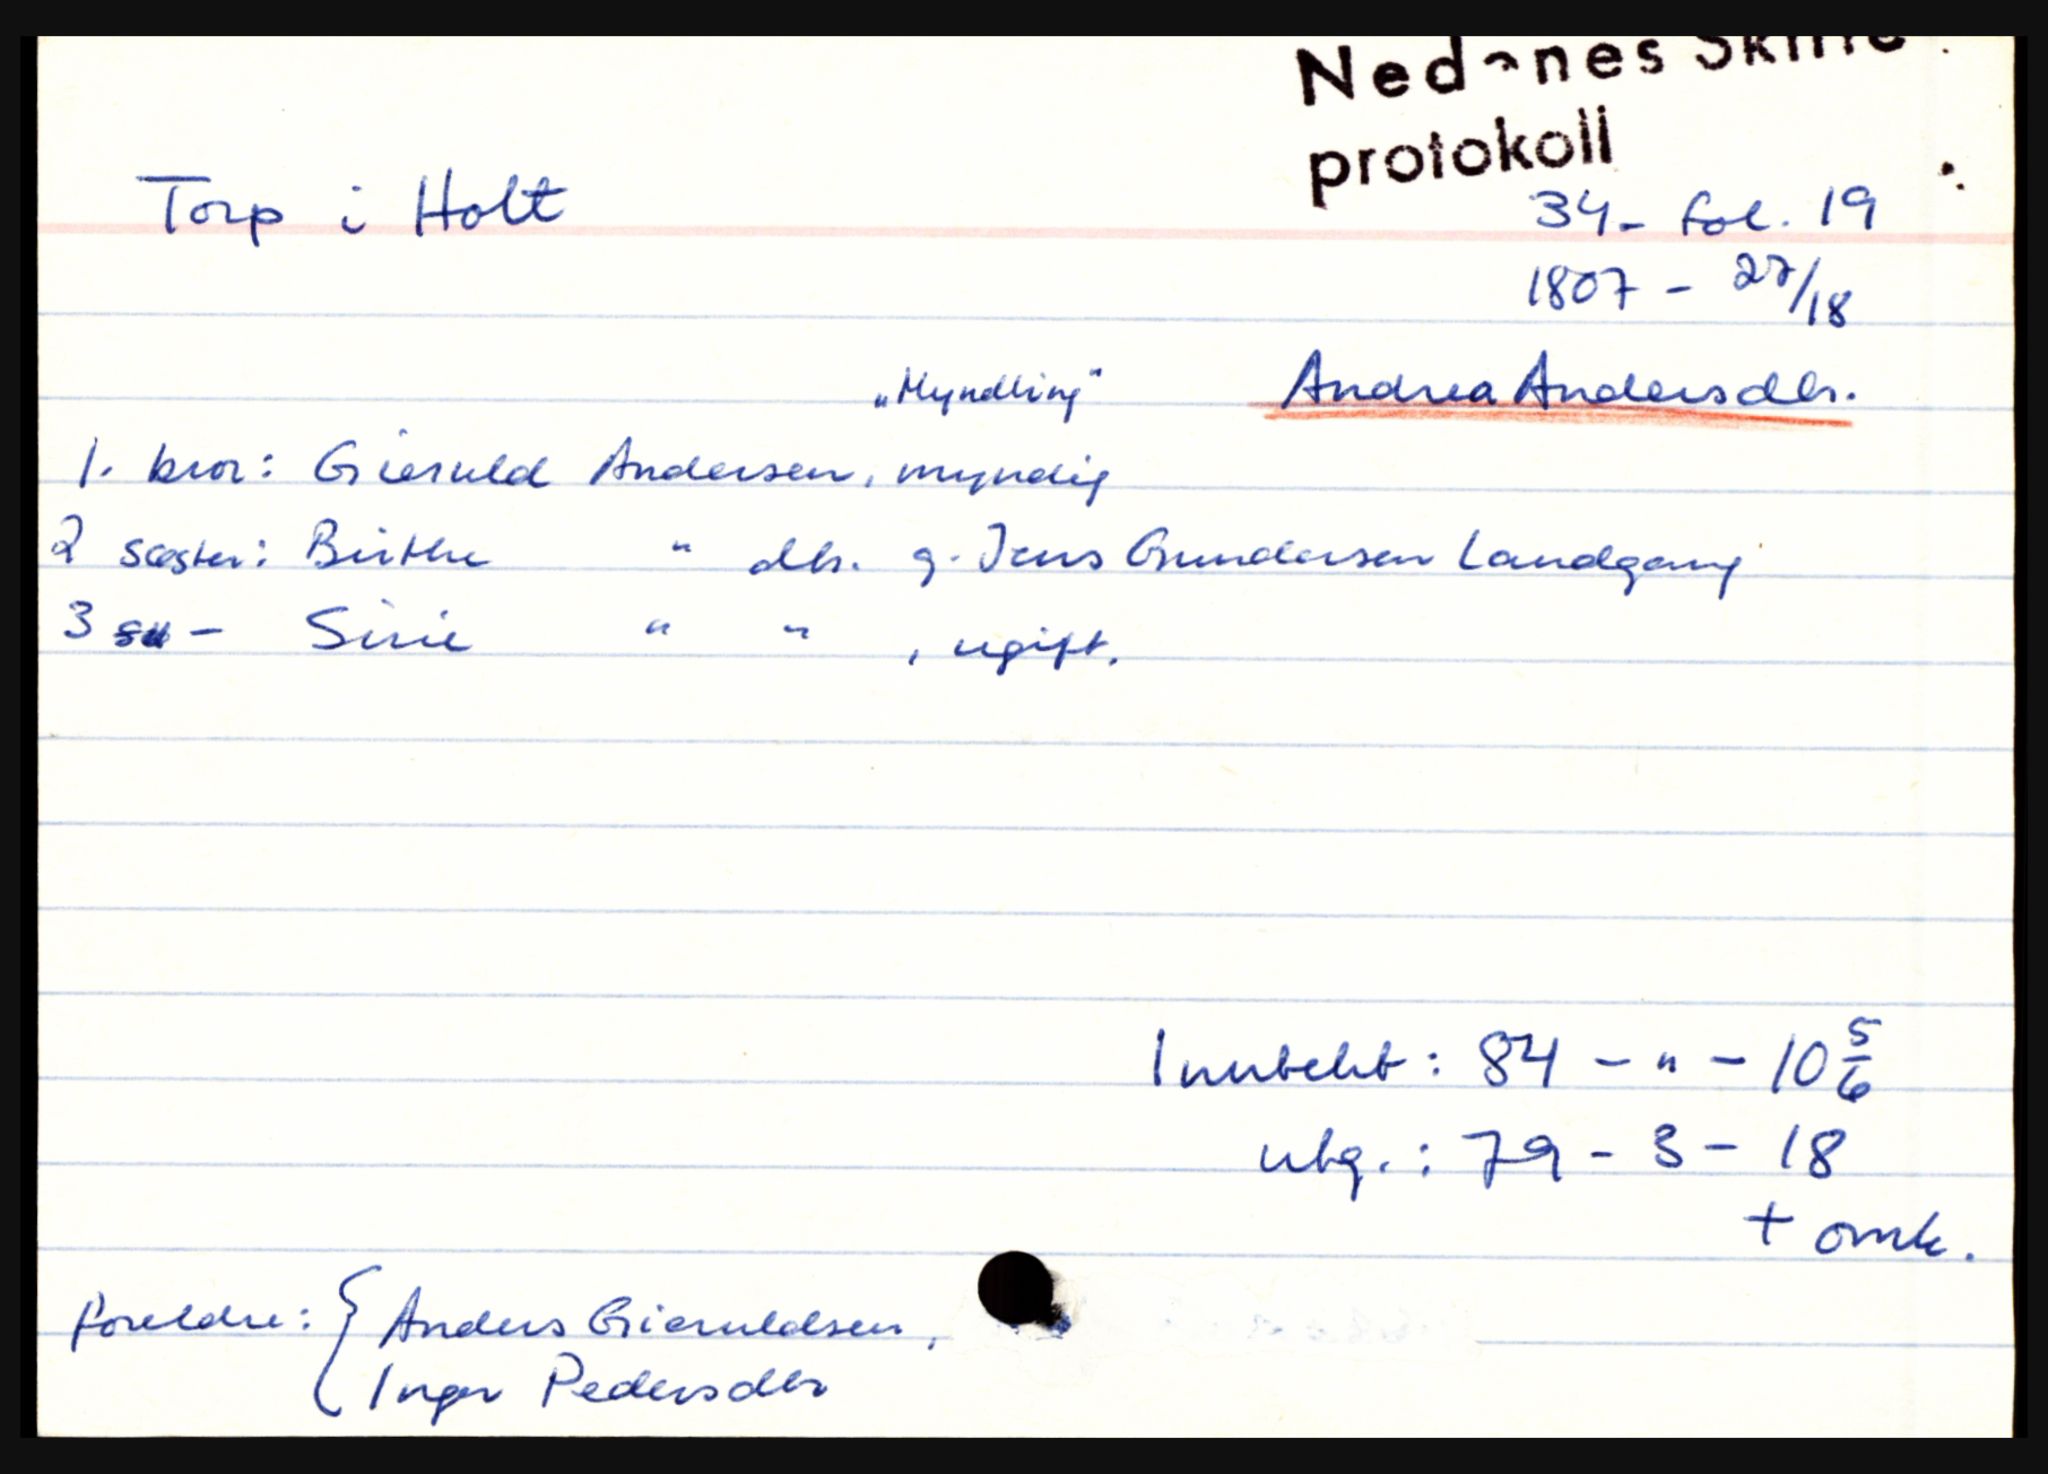 Nedenes Skifte
protokoll
Torp i Holt
34 - fol. 19
1807 - 27/18
„Myndling" Andrea Andersdtr.
1. bror: Gieruld Andersen, myndig
2 søster: Birthe " dtr. g. Jens Gundersen Landgang
3 - Sirie " " , ugift.
Inntekt: 84 - " - 10 5/6
utg. : 79 - 3 - 18
+ omk.
foreldre: { Anders Gieruldsen,
Inger Pedersdtr